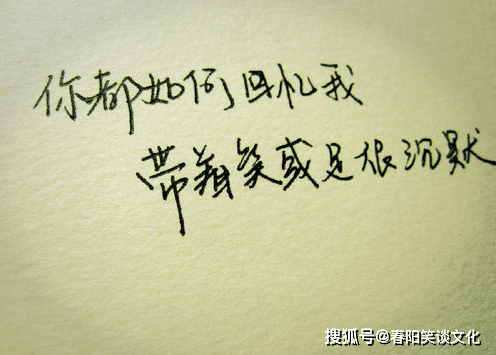 你都如何回忆我
带着笑或是很沉默
搜狐号@春阳笑谈文化